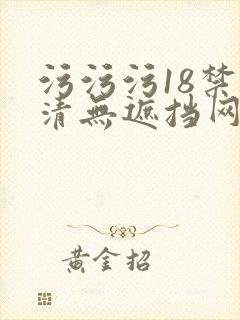 污污污18禁
清無遮挡网
黄金招